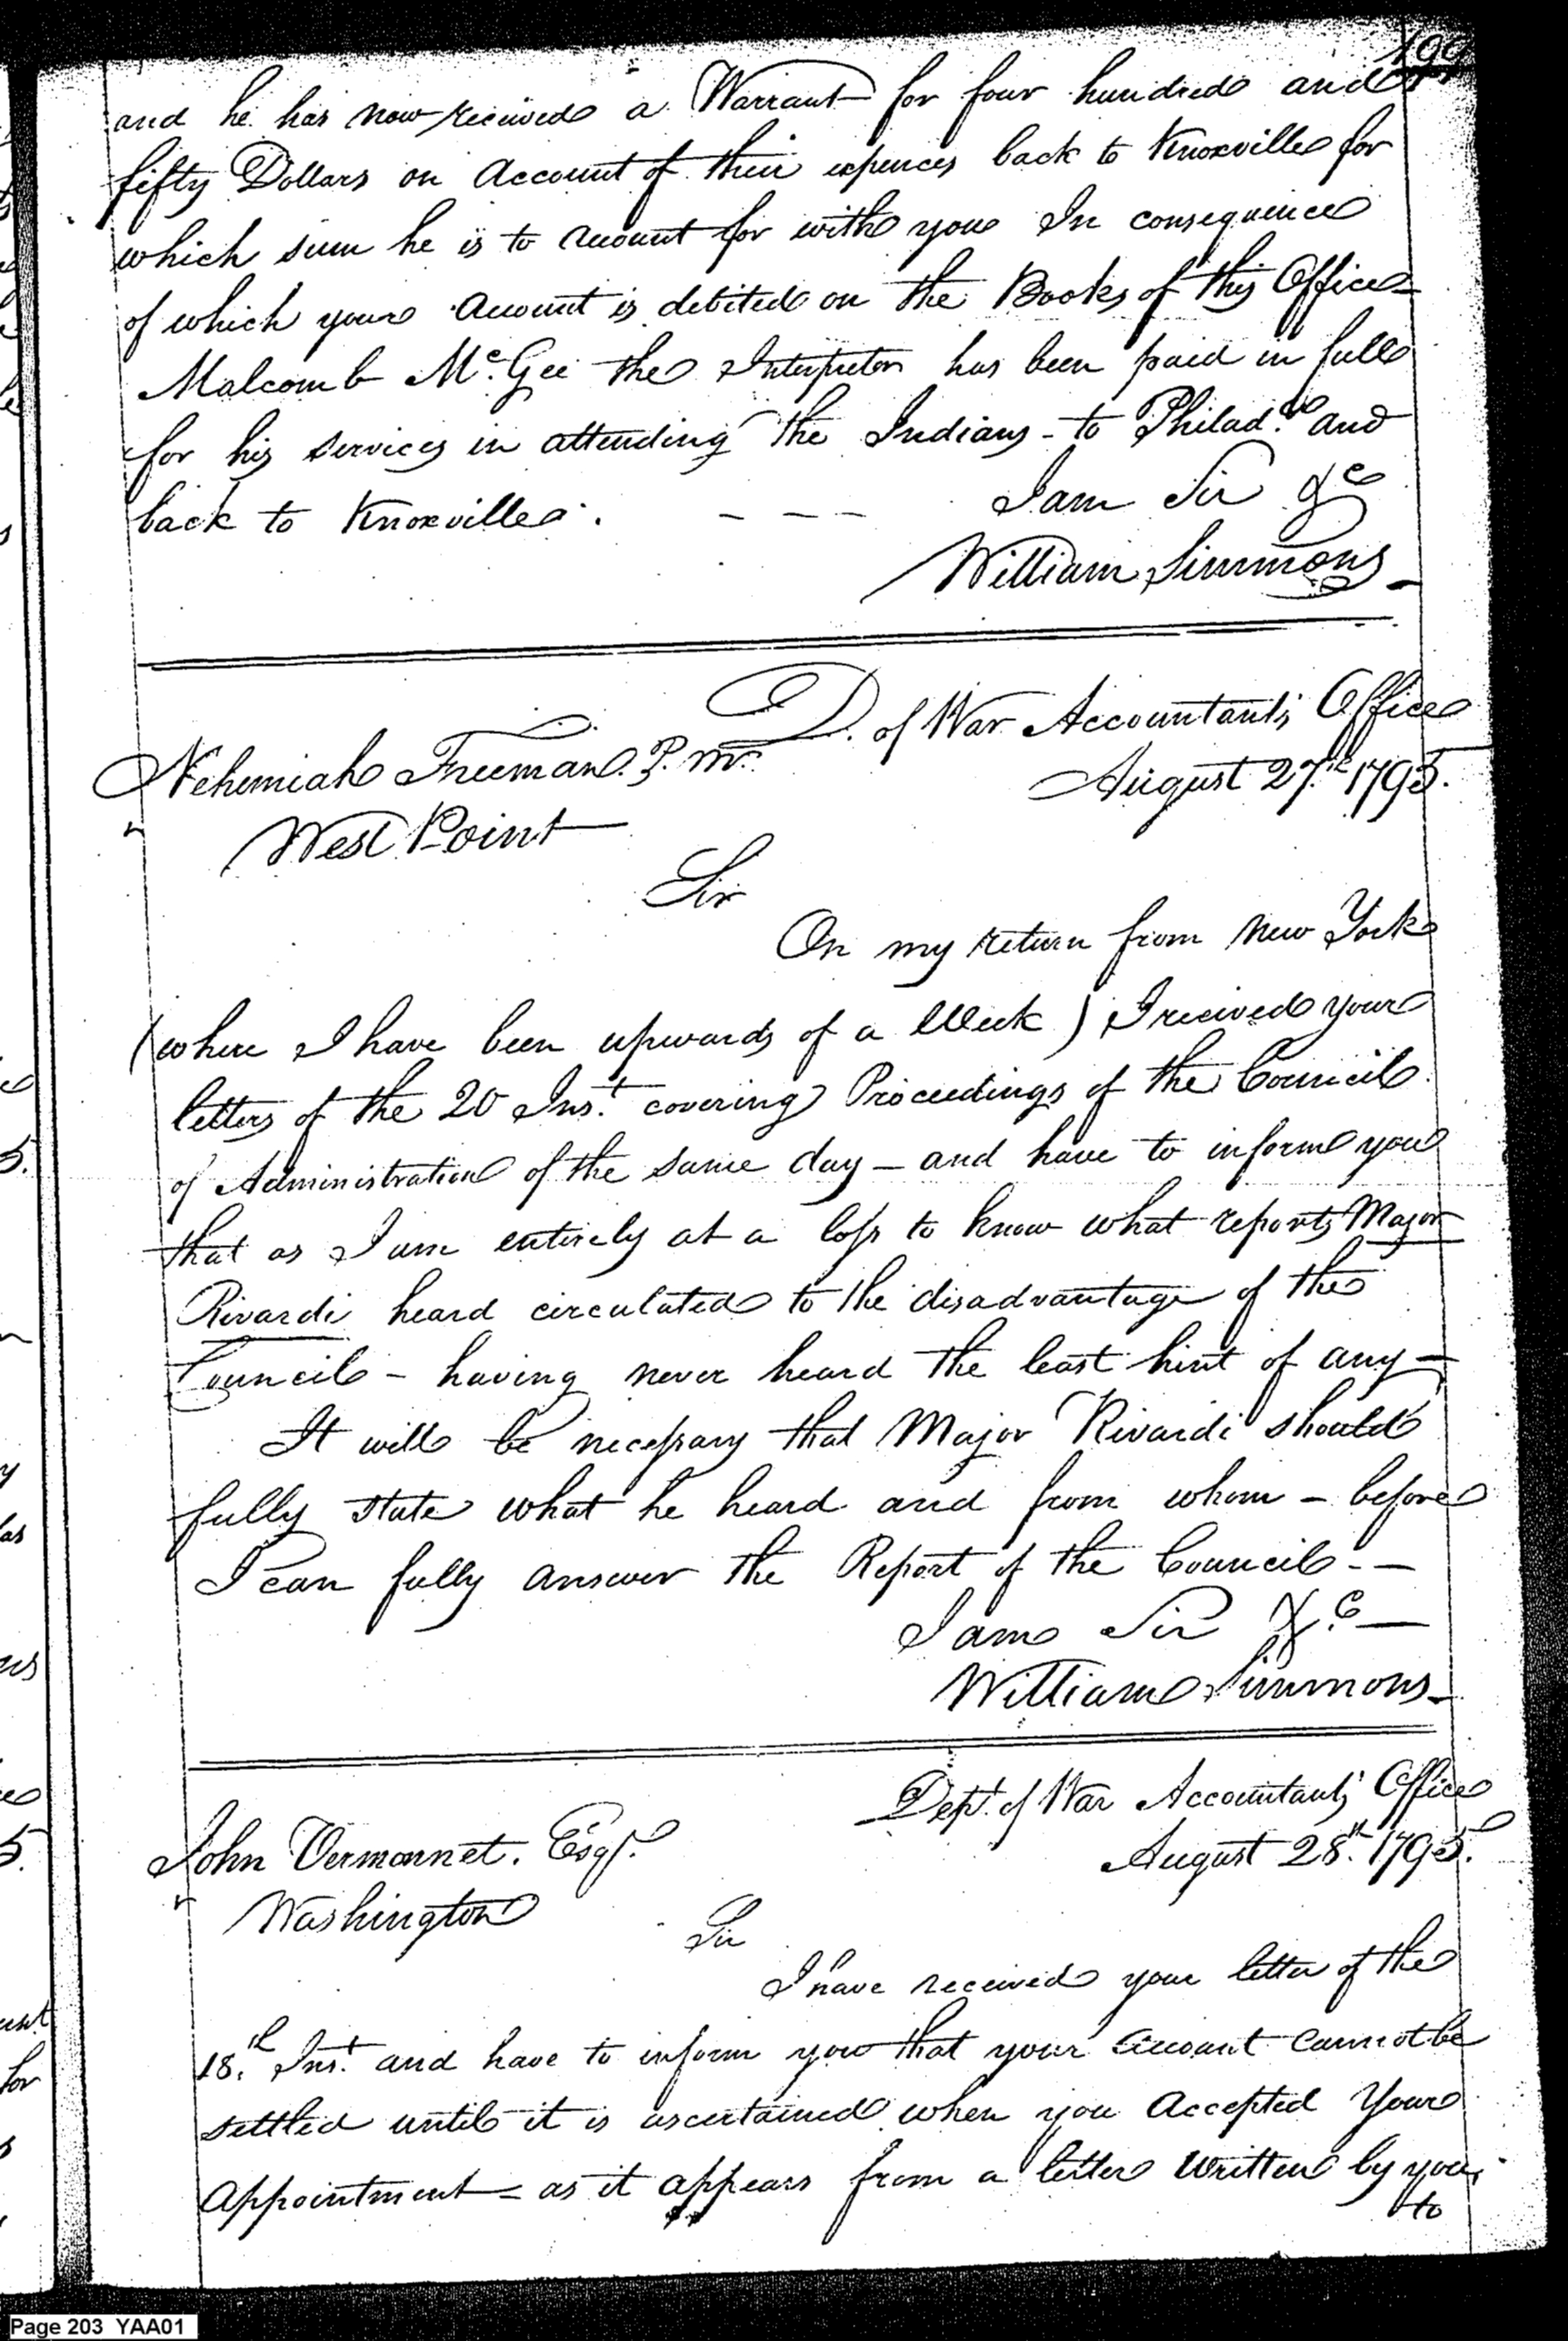 199
and he has now received a Warrant for four hundred and
fifty Dollars on Account of their expences back to Knoxville for
which sum he is to account for with you In consequence
of which your Account is debited on the Books of this Office
Malcomb Mc. Gee the Interpreter has been paid in full
for his services in attending the Indians - to Philada. and
back to Knoxville. - - -
I am Sir &c
William Simmons
D. of War Accountants Office
Nehemiah Freeman. P. Mr.
August 27.th 1795.
West Point
Sir
On my return from New York
(where I have been upwards of a Week) I received your
letters of the 20 Inst. covering Proceedings of the Council
of Administration of the same day - and have to inform you
that as I am entirely at a loss to know what reports Major
Rivardi heard circulated to the disadvantage of the
Council - having never heard the least hint of any -
It will be necessary that Major Rivardi should
fully state what he heard and from whom - before
I can fully answer the Report of the Council. -
I am Sir &c. -
William Simmons -
Dept. of War Accountants Office
John Vermonnet. Esqr.
August 28th. 1795.
Washington
Sir
I have received your letter of the
18.th Inst. and have to inform you that your Account cannot be
settled until it is ascertained when you Accepted Your
Appointment - as it appears from a letter written by you
to
Page 203 YAA01